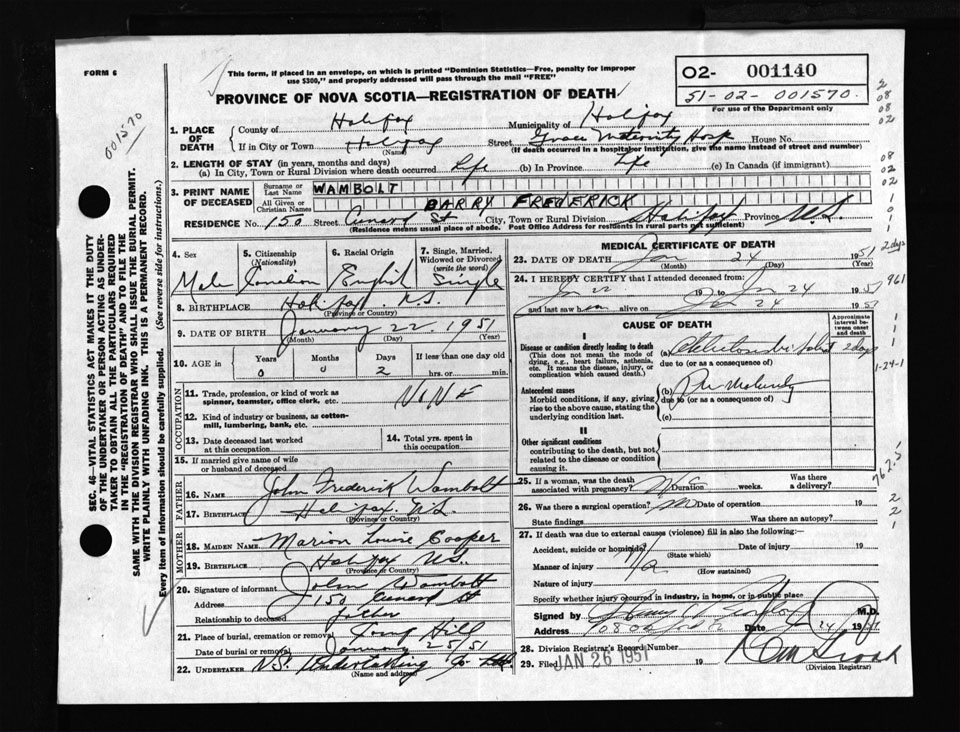 FORM 6
This form, if placed in an envelope, on which is printed "Dominion Statistics—Free, penalty for improper
use $300," and properly addressed will pass through the mail "FREE"
PROVINCE OF NOVA SCOTIA—REGISTRATION OF DEATH
02- 001140
51-02-001570
For use of the Department only
001570
1. PLACE OF DEATH
County of Halifax Municipality of Halifax
If in City or Town Halifax Street Grace Maternity Hosp House No.
(Name) (If death occurred in a hospital or institution, give the name instead of street and number)
2. LENGTH OF STAY (in years, months and days)
(a) In City, Town or Rural Division where death occurred Life (b) In Province Life (c) In Canada (if immigrant)
3. PRINT NAME OF DECEASED
Surname or Last Name WAMBOLT
All Given or Christian Names BARRY FREDERICK
RESIDENCE No. 150 Street Cunard St City, Town or Rural Division Halifax Province N.S.
(Residence means usual place of abode. Post Office Address for residents in rural parts not sufficient)
4. Sex
Male
5. Citizenship (Nationality)
Canadian
6. Racial Origin
English
7. Single, Married, Widowed or Divorced (write the word)
Single
8. BIRTHPLACE Halifax N.S.
(Province or Country)
9. DATE OF BIRTH January 22 1951
(Month) (Day) (Year)
10. AGE in Years Months Days If less than one day old
0 0 2 hrs. or min.
OCCUPATION
11. Trade, profession, or kind of work as
spinner, teamster, office clerk, etc.
12. Kind of industry or business, as cotten-
mill, lumbering, bank, etc.
13. Date deceased last worked
at this occupation
14. Total yrs. spent in
this occupation
15. If married give name of wife
or husband of deceased
FATHER
16. Name John Frederick Wambolt
17. Birthplace Halifax N.S.
(Province or Country)
MOTHER
18. MAIDEN NAME Marion Louise Cooper
19. BIRTHPLACE Halifax N.S.
(Province or Country)
20. Signature of informant John Wambolt
Address 150 Cunard St
Relationship to deceased father
21. Place of burial, cremation or removal Long Hill
Date of burial or removal January 25/51
22. UNDERTAKER N.S. Undertaking Co Ltd
(Name and address)
MEDICAL CERTIFICATE OF DEATH
23. DATE OF DEATH Jan 24 1951
(Month) (Day) (Year)
24. I HEREBY CERTIFY that I attended deceased from:
Jan 22 19 to Jan 24 1951
and last saw h alive on Jan 24 1951
CAUSE OF DEATH
Approximate interval between onset and death
I
Disease or condition directly leading to death
(This does not mean the mode of
dying, e.g., heart failure, asthenia,
etc. It means the disease, injury, or
complication which caused death.)
(a) 2 days
due to (or as a consequence of)
Antecedent causes
Morbid conditions, if any, giving
rise to the above cause, stating the
underlying condition last.
(b) Prematurity
due to (or as a consequence of)
(c)
II
Other significant conditions
contributing to the death, but not
related to the disease or condition
causing it.
25. If a woman, was the death
associated with pregnancy? Duration weeks. Was there a delivery?
26. Was there a surgical operation? no Date of operation 19
State findings Was there an autopsy?
27. If death was due to external causes (violence) fill in also the following:—
Accident, suicide or homicide? Date of injury 19
(State which)
Manner of injury n/a
(How sustained)
Nature of injury
Specify whether injury occurred in industry, in home, or in public place
Signed by M.D.
Address Date 24 1951
28. Division Registrar's Record Number
29. Filed JAN 26 1951 19
(Division Registrar)
SEC. 46—VITAL STATISTICS ACT MAKES IT THE DUTY
OF THE UNDERTAKER OR PERSON ACTING AS UNDER-
TAKER TO OBTAIN ALL THE PARTICULARS REQUIRED
IN THE "REGISTRATION OF DEATH" AND TO FILE THE
SAME WITH THE DIVISION REGISTRAR WHO SHALL ISSUE THE BURIAL PERMIT.
WRITE PLAINLY WITH UNFADING INK. THIS IS A PERMANENT RECORD.
Every item of information should be carefully supplied. (See reverse side for instructions.)
2
08
08
02
08
02
02
2 days
961
1-24-1
762.5
2
2
1